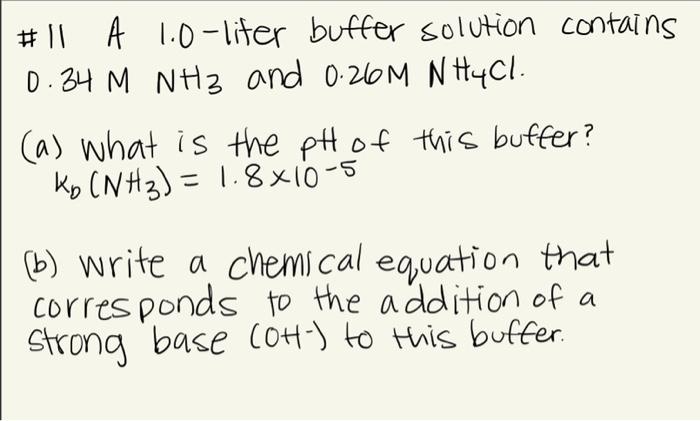 #11 A 1.0-liter buffer solution contains
0.34 M NH3 and 0.26M NH4Cl.
(a) what is the pH of this buffer?
Kb (NH3) = 1.8×10-5
(b) write a chemical equation that
corresponds to the addition of a
strong base (OH-) to this buffer.